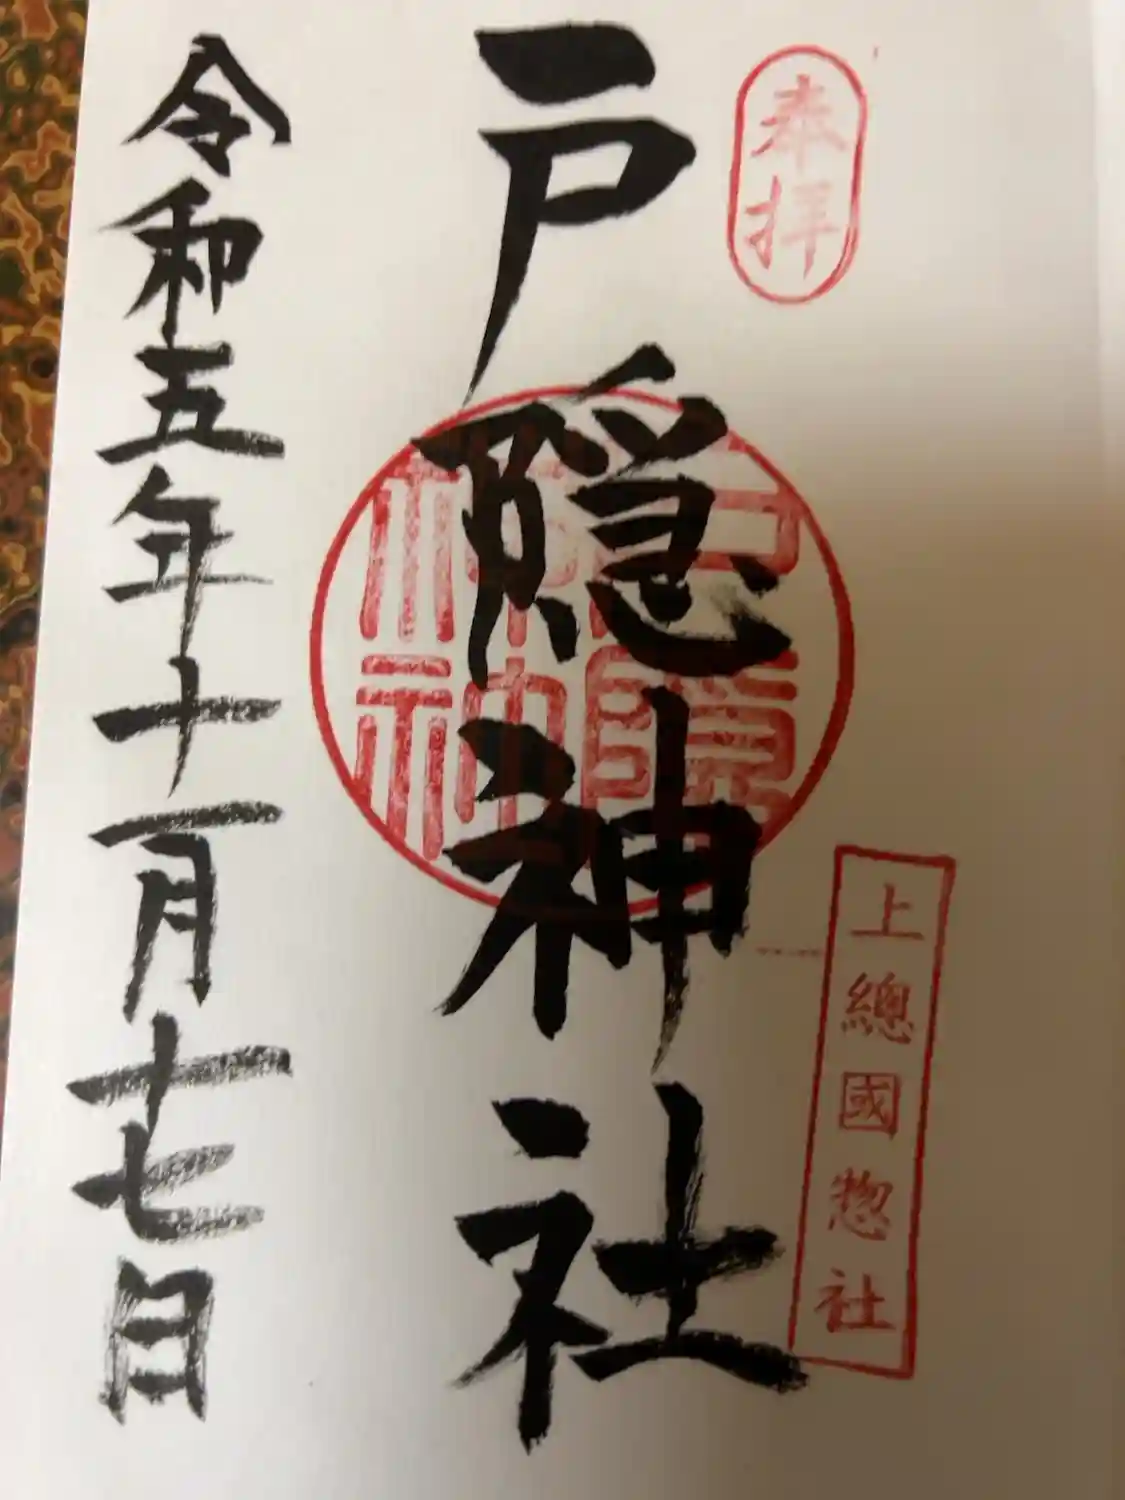 奉拝
上總國惣社
戸隠神社
令和五年十一月十七日